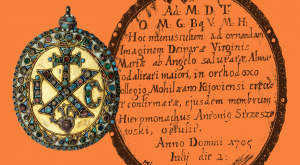 Ad M. D T
O M. G. Bq V. M. H:
Hoc munusculum ad ornandam
Imaginem Deiparæ Virginis
Mariæ ab Angelo salutatæ, Almæ
Sodalitati maiori, in orthodoxo
Collegio Mohilæano Kijoviensi erectæ
et confirmatæ, ejusdem membrum
Hieromonachus Antonig Strzeszewski
obtulit.
Anno Domini 1705
Iulij die 2: